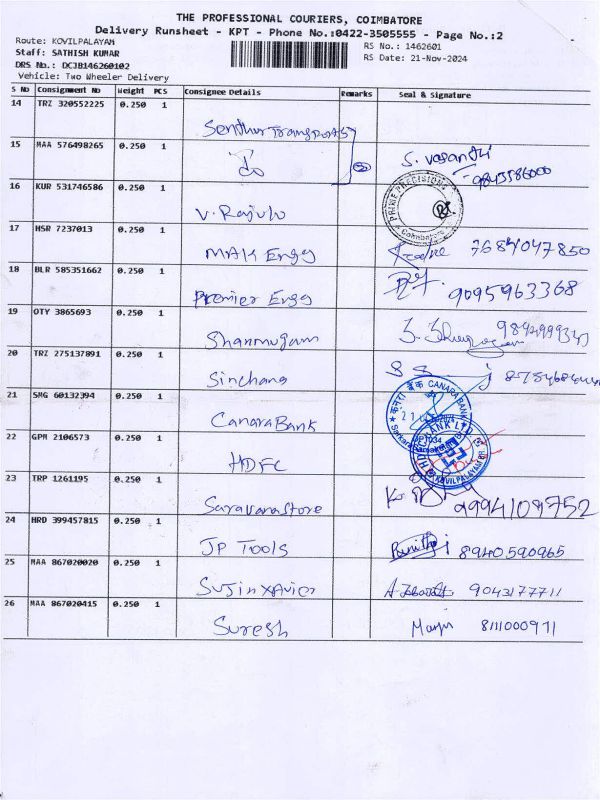 THE PROFESSIONAL COURIERS, COIMBATORE
Delivery Runsheet - KPT - Phone No.:0422-3505555 - Page No.:2
Route: KOVILPALAYAM
RS No.: 1462601
Staff: SATHISH KUMAR
RS Date: 21-Nov-2024
DRS No.: DCJB146260102
Vehicle: Two Wheeler Delivery
S No Consignment No Weight PCS Consignee Details Remarks Seal & Signature
14 TRZ 320552225 0.250 1
Senthur Transports
15 MAA 576498265 0.250 1
Do S. Vasanthi
16 KUR 531746586 0.250 1
V. Rajulu PRIME PRECISIONS Coimbatore
17 HSR 7237013 0.250 1
MAK Engg 7684047850
18 BLR 585351662 0.250 1
Premier Engg 9095963368
19 OTY 3865693 0.250 1
Shanmugam
20 TRZ 275137891 0.250 1
Sinchana
21 SMG 60132394 0.250 1
Canara Bank CANARA BANK
22 GPM 2106573 0.250 1
HDFC KOVILPALAYAM BR
23 TRP 1261195 0.250 1
Saravana store 9994109752
24 HRD 399457815 0.250 1
JP TOOLS 8940590965
25 MAA 867020020 0.250 1
Sujin Xavier 9043177711
26 MAA 867020415 0.250 1
Suresh